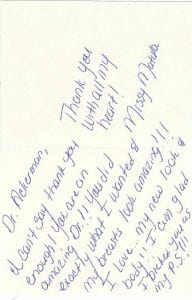 Dr. Ackerman,
I can't say thank you
enough! You are an
amazing Dr.!! You did
exactly what I wanted &
my breasts look amazing!!!
I love... my new look &
body! I am glad
I picked you as
my P.S.!!!
Thank you
with all my
heart!
Missy